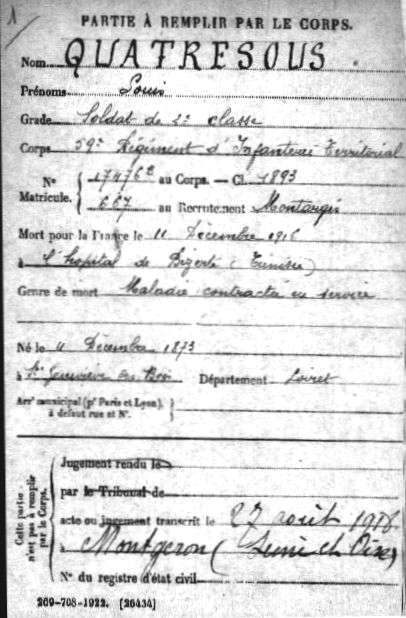 1
PARTIE À REMPLIR PAR LE CORPS.
Nom QUATRESOUS
Prénoms Louis
Grade Soldat de 2e classe
Corps 59e Régiment d'Infanterie Territorial
Nº Matricule. { 17476 au Corps. — Cl. 1893
667 au Recrutement Montargis
Mort pour la France le 11 Décembre 1916
à l'hopital de Bizerte (Tunisie)
Genre de mort Maladie contractée en service
Né le 11 Décembre 1873
à Ste Geneviève des Bois Département Loiret
Arrt municipal (pr Paris et Lyon), à défaut rue et Nº. }
Cette partie n'est pas à remplir par le Corps. {
Jugement rendu le
par le Tribunal de
acte ou jugement transcrit le 27 août 1918
à Montgeron (Seine et Oise)
Nº du registre d'état civil
269-708-1922. [26434]